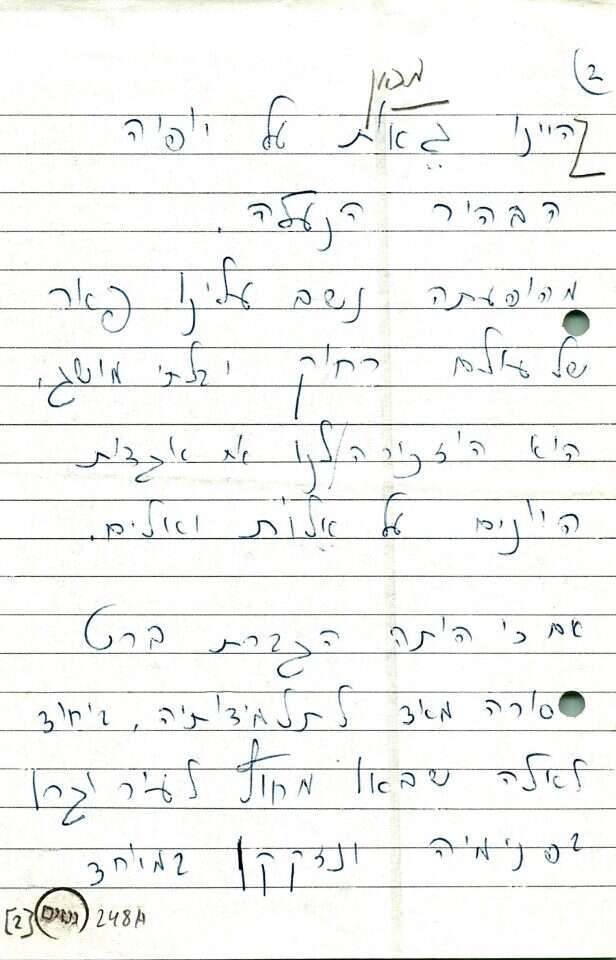 2)
מכאן
היינו גאות על יופיה
הבהיר הנעלה.
מהופעתה נשב עלינו פאר
של עולם רחוק ובלתי מושג,
היא הזכירה לנו את אגדות
היונים על אלות ואלים.
אם כי היתה הגברת ברט
מסורה מאד לתלמידותיה, ביחוד
לאלה שבאו מחוץ לעיר וגרו
בפנימיה ונזקקו במיוחד
[2] גנזים 248A